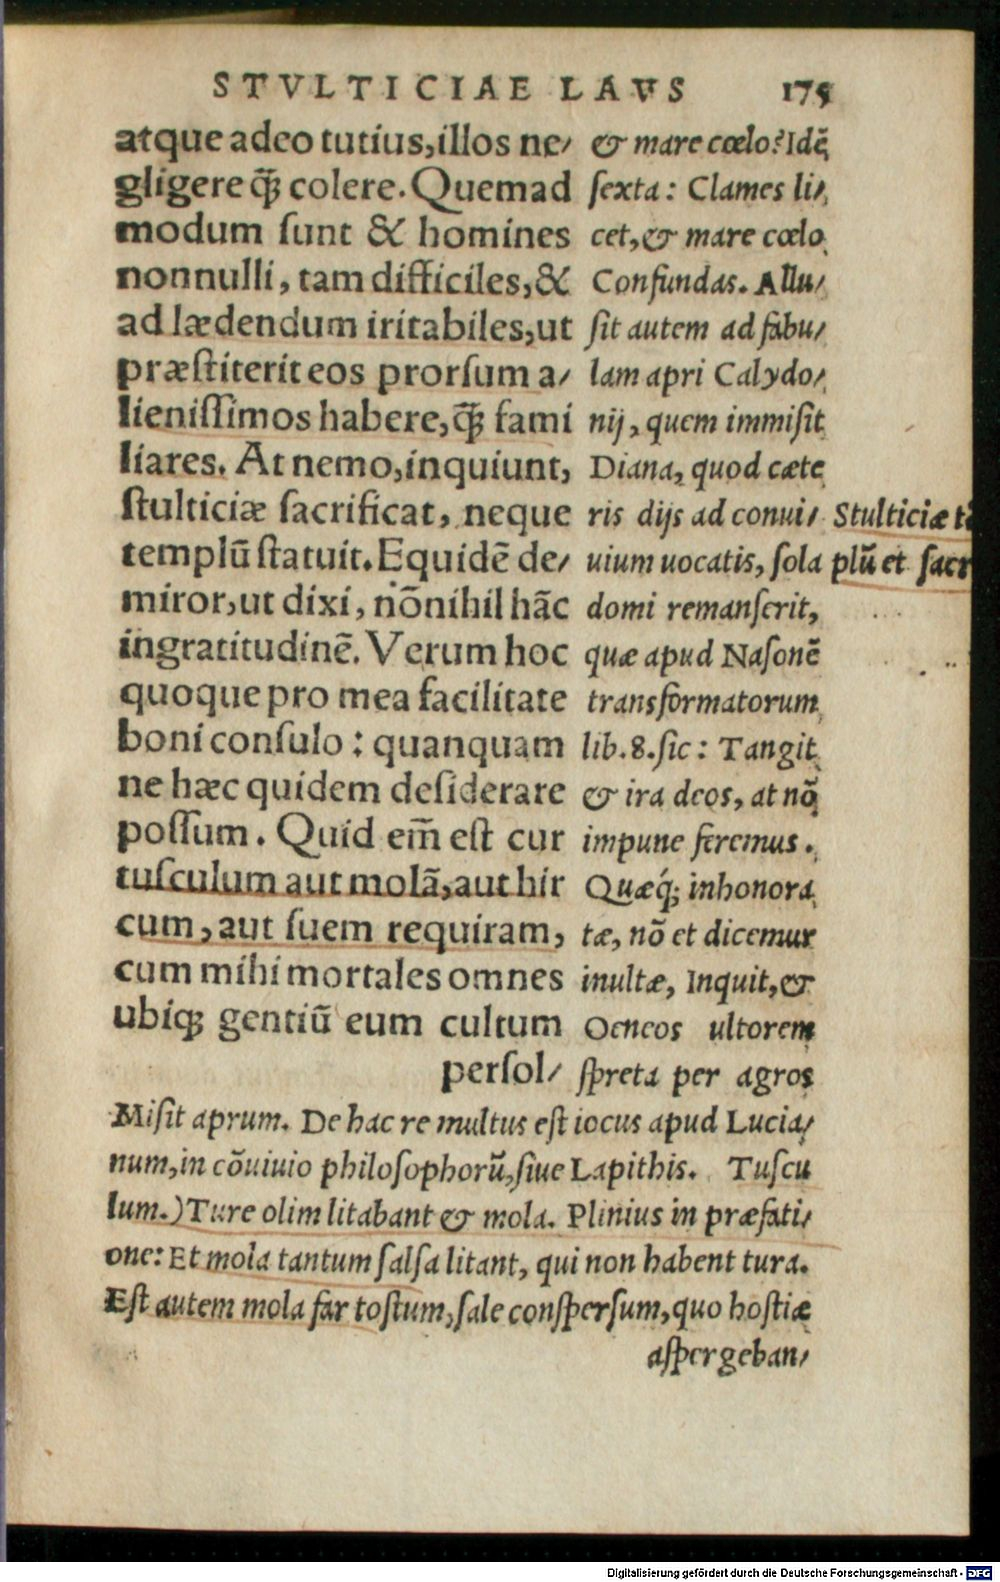 STVLTICIAE LAVS 175
atque adeo tutius, illos ne/
gligere q̃ꝫ colere. Quemad
modum sunt & homines
nonnulli, tam difficiles, &
ad lædendum iritabiles, ut
præstiterit eos prorsum a/
lienissimos habere, q̃ꝫ fami
liares. At nemo, inquiunt,
stulticiæ sacrificat, neque
templũ statuit. Equidẽ de/
miror, ut dixi, nõnihil hãc
ingratitudinẽ. Verum hoc
quoque pro mea facilitate
boni consulo: quanquam
ne hæc quidem desiderare
possum. Quid em̃ est cur
tusculum aut molã, aut hir
cum, aut suem requiram,
cum mihi mortales omnes
ubiqꝫ gentiũ eum cultum
persol/
& mare cœlo? Idẽ
sexta: Clames li/
cet, & mare cœlo
Confundas. Allu/
sit autem ad fabu/
lam apri Calydo/
nij, quem immisit
Diana, quod cæte
ris dijs ad conui/
uium uocatis, sola
domi remanserit,
quæ apud Nasonẽ
transformatorum
lib. 8. sic: Tangit
& ira deos, at nõ
impune feremus.
Quæq́ꝫ inhonora
tæ, nõ et dicemur
inultæ, Inquit, &
Oeneos ultorem
spreta per agros
Stulticiæ tẽ
plũ et sacr
Misit aprum. De hac re multus est iocus apud Lucia/
num, in cõuiuio philosophorũ, siue Lapithis. Tuscu
lum.) Ture olim litabant & mola. Plinius in præfati/
one: Et mola tantum salsa litant, qui non habent tura.
Est autem mola far tostum, sale conspersum, quo hostiæ
aspergeban/
Digitalisierung gefördert durch die Deutsche Forschungsgemeinschaft - DFG